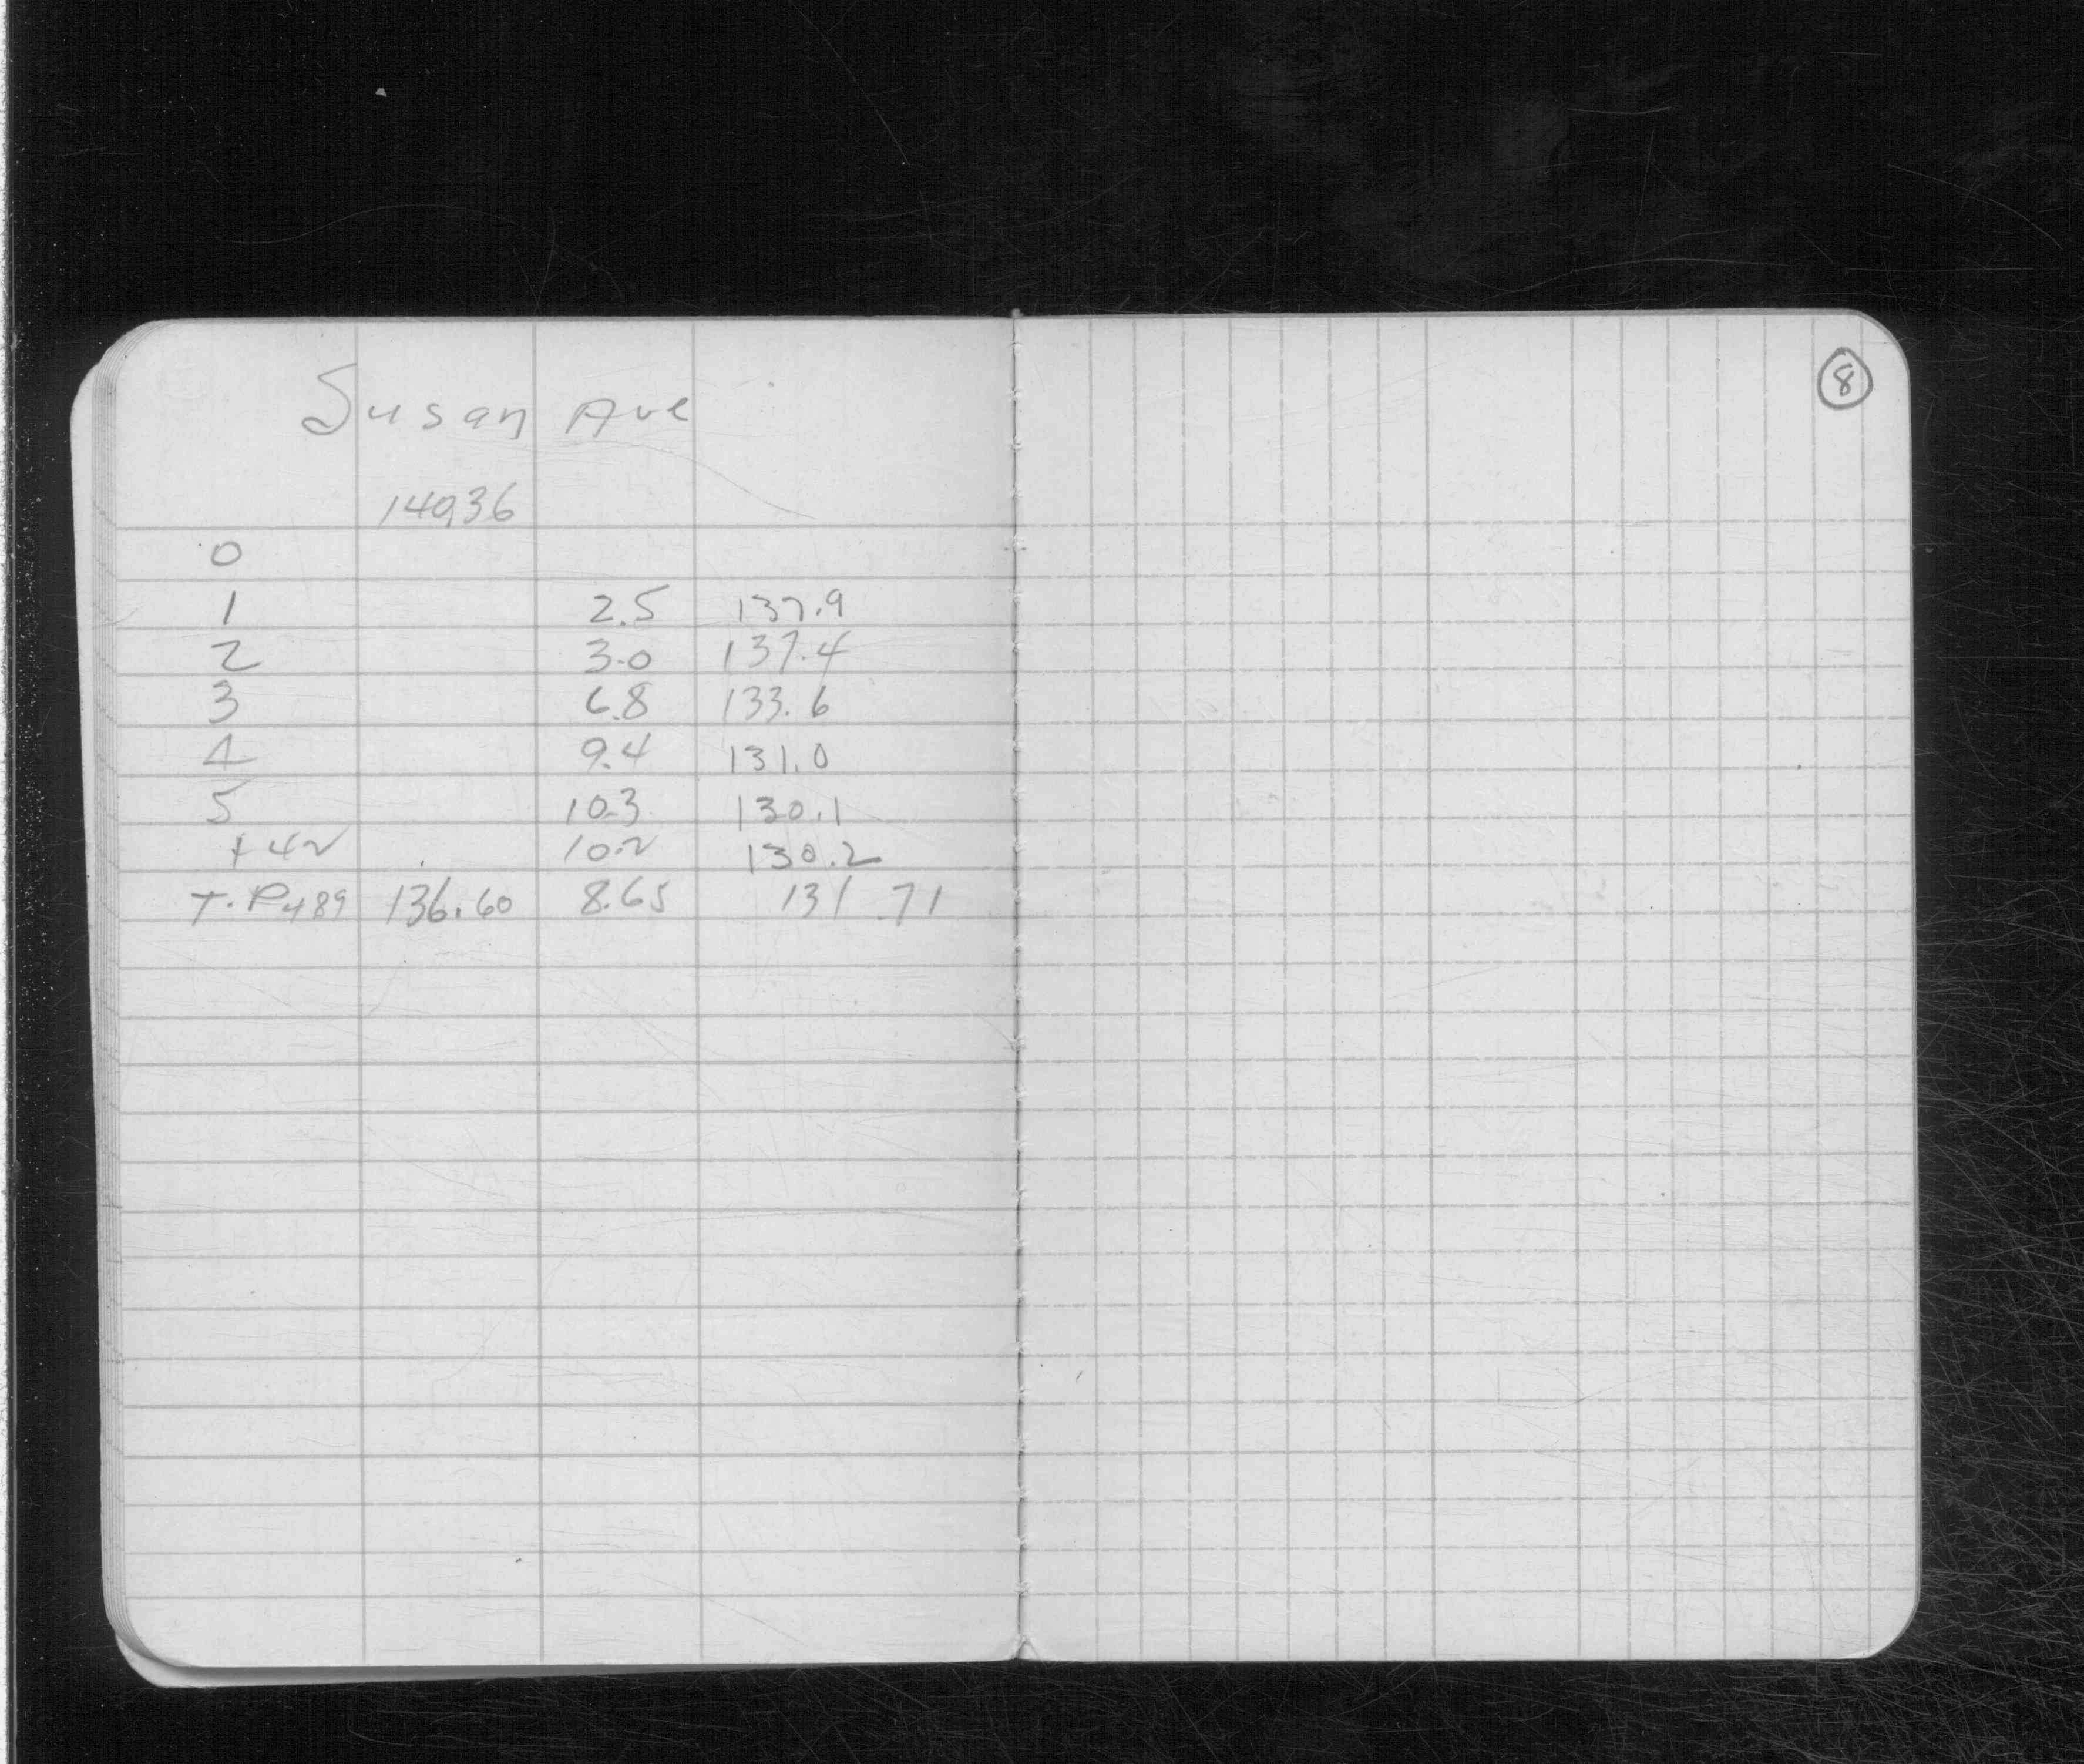 Susan Ave
8
140.36
0
1 2.5 137.9
2 3.0 137.4
3 6.8 133.6
4 9.4 131.0
5 10.3 130.1
+42 10.2 130.2
T.P 4.89 136.60 8.65 131.71